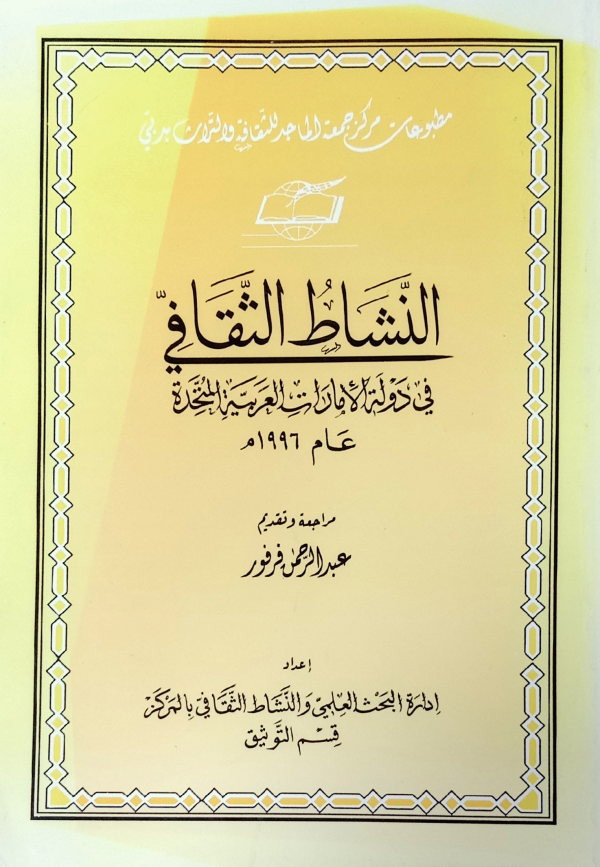 مطبوعات مركز جمعة الماجد للثقافة والتراث بدبي
النَّشَاطُ الثَّقَافيّ
في دَوْلَة الإمَارَات العَرَبيَّة المتَّحِدَة
عَام ١٩٩٦م
مراجعة وتقديم
عبد الرَّحمن فرفور
إعداد
إدارة البَحْث العِلميّ وَالنَّشَاط الثَّقَافيّ بالمَركَز
قِسْم التَّوثيق